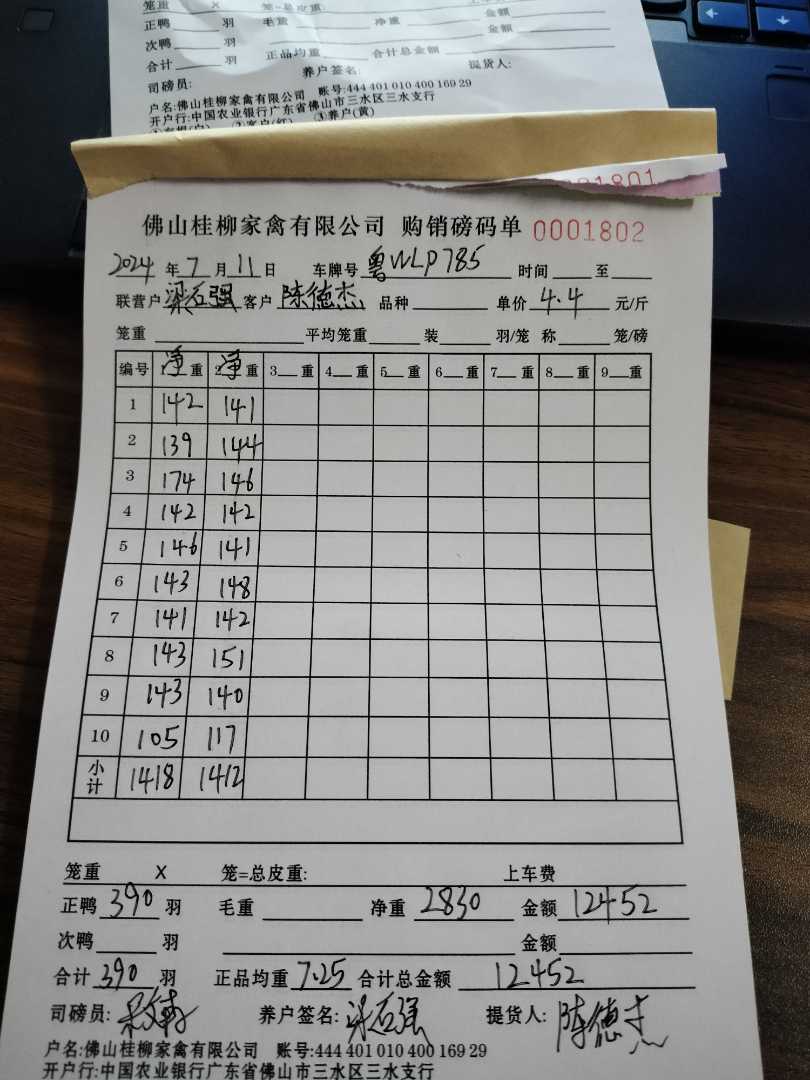 笼重 X 笼=总皮重:
正鸭 羽 毛重 净重 金额
次鸭 羽 金额
合计 羽 正品均重 合计总金额
司磅员: 养户签名: 提货人:
户名:佛山桂柳家禽有限公司 账号:444 401 010 400 169 29
开户行:中国农业银行广东省佛山市三水区三水支行
③养户(黄)
0001801
佛山桂柳家禽有限公司 购销磅码单 0001802
2024 年 7 月 11 日 车牌号 粤WLP785 时间 至
联营户 梁石强 客户 陈德杰 品种 单价 4.4 元/斤
笼重 平均笼重 装 羽/笼 称 笼/磅
编号 净重 2净重 3 重 4 重 5 重 6 重 7 重 8 重 9 重
1 142 141
2 139 144
3 174 146
4 142 142
5 146 141
6 143 148
7 141 142
8 143 151
9 143 140
10 105 117
小计 1418 1412
笼重 X 笼=总皮重: 上车费
正鸭 390 羽 毛重 净重 2830 金额 12452
次鸭 羽 金额
合计 390 羽 正品均重 7.25 合计总金额 12452
司磅员: 养户签名: 梁石强 提货人: 陈德杰
户名:佛山桂柳家禽有限公司 账号:444 401 010 400 169 29
开户行:中国农业银行广东省佛山市三水区三水支行